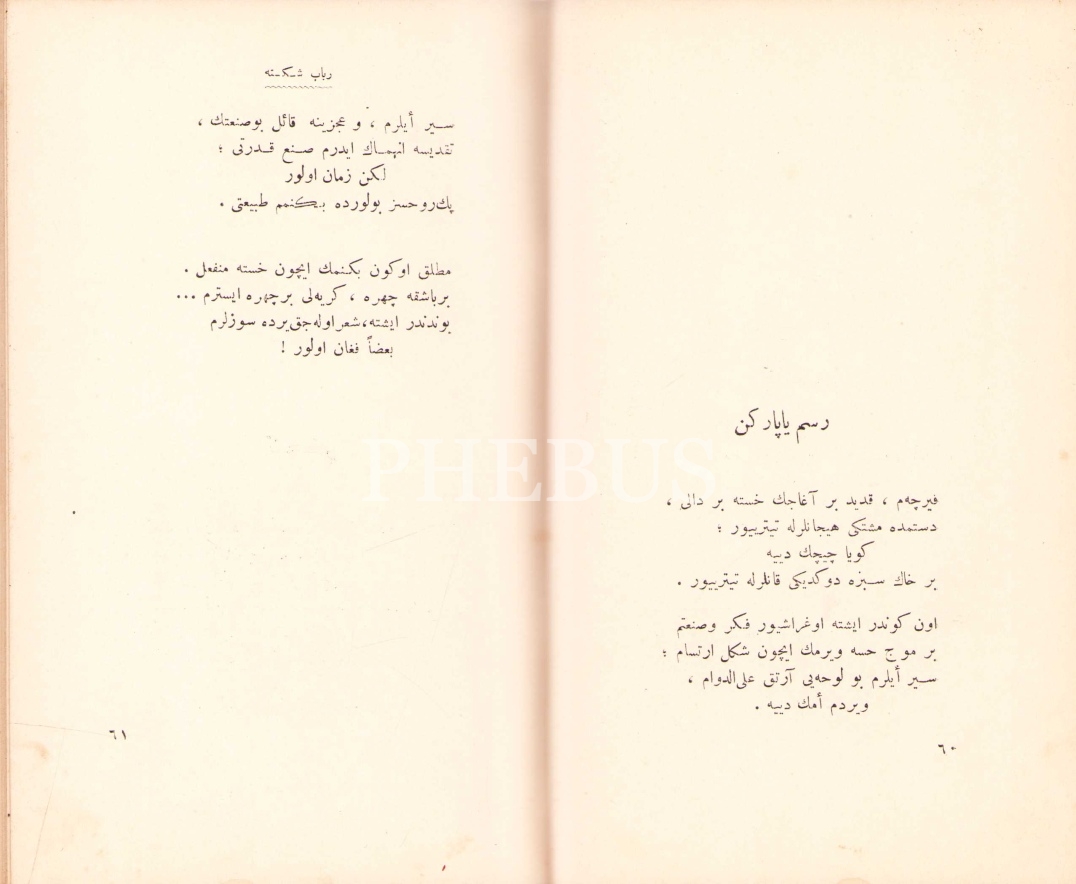 رسم ياپاركن
فيرچه‌م ، قديد بر آغاجك خسته بر دالى ،
دستمده مشتكى هيجانلرله تيتريیور ؛
كويا چيچك دييه
بر خاك سبزه دوكديكى قانلرله تيتريیور .
اون كوندر ايشته اوغراشيور فكر وصنعتم
بر موج حسه ويرمك ايچون شكل ارتسام ؛
سير أيلرم بو لوحه‌يى آرتق على‌الدوام ،
ويردم أمك دييه .
٦٠
رباب شكسته
سير أيلرم ، و عجزينه قائل بوصنعتك ،
تقديسه انهماك ايدرم صنع قدرتى ؛
لكن زمان اولور
پك روحسز بولورده بكنمم طبيعتى .
مطلق اوكون بكنمك ايچون خسته منفعل .
برباشقه چهره ، كريه‌لى برچهره ايسترم ...
بوندندر ايشته، شعر اوله‌جق يرده سوزلرم
بعضاً فغان اولور !
٦١
PHEBUS